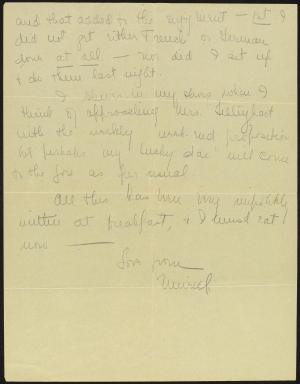 and that added to the enjoyment — yet I
did not get either French or German
done at all — nor did I get up
& do them last night.
I shiver in my shoes when I
think of approaching Mrs. Tillinghast
with the weekly preparation
but perhaps my "lucky star" will come
to the fore as per usual.
All this has been very impolitely
written at breakfast, & I must eat
now —
Love from